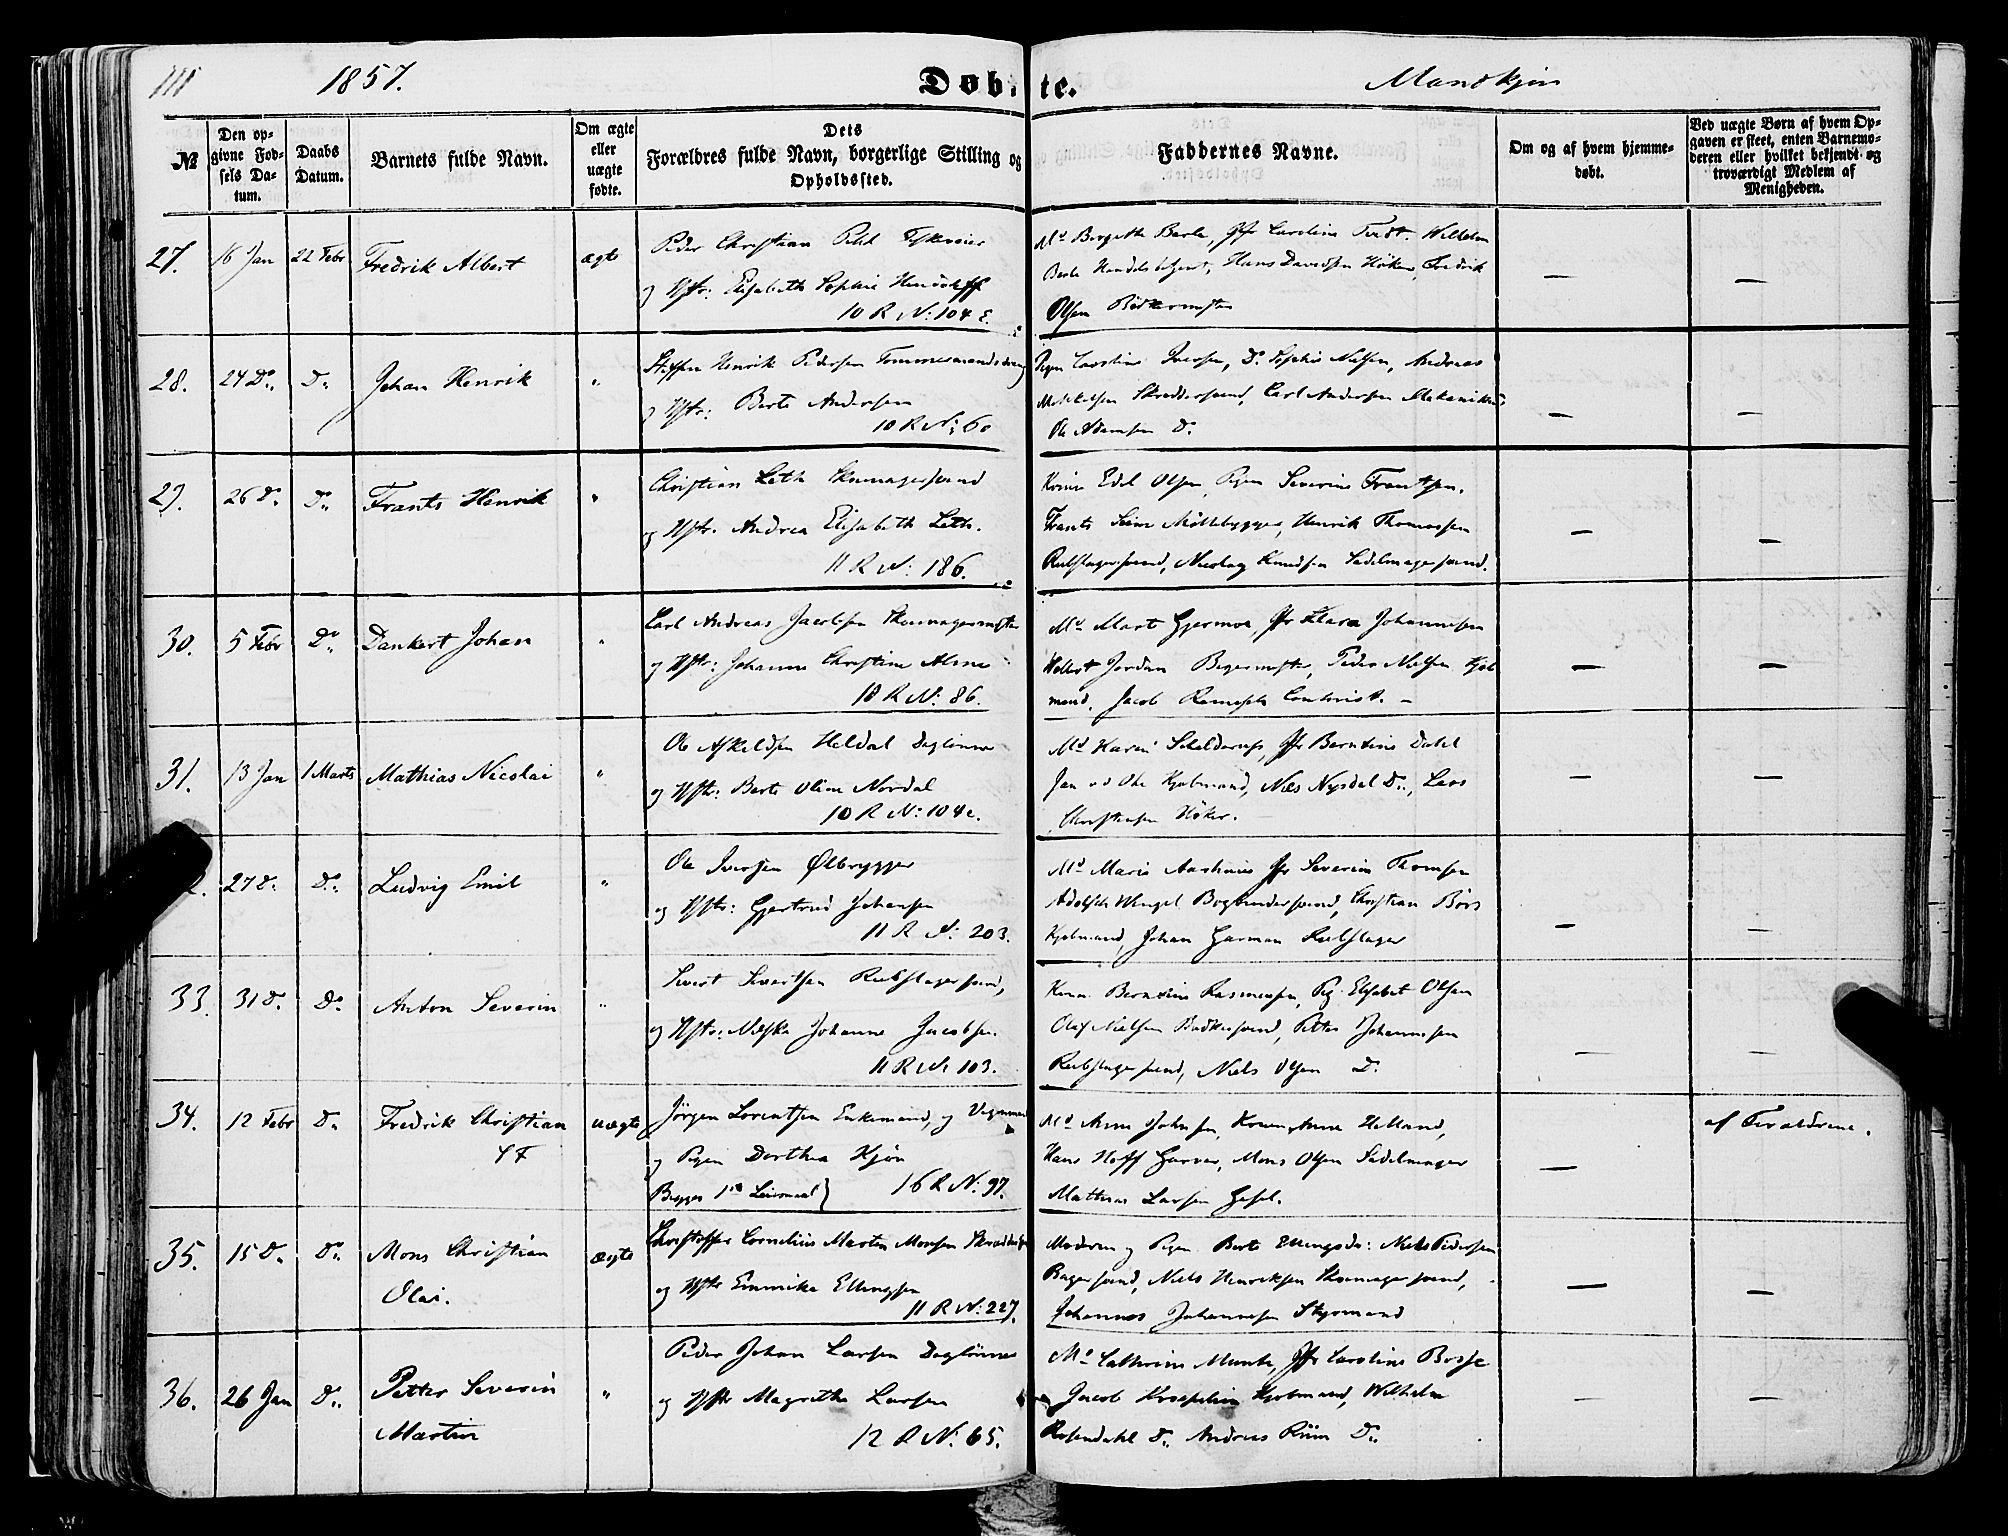 111 1857. Døbte. Mandkjøn
№
Den opgivne Fødsels Datum.
Daabs Datum.
Barnets fulde Navn.
Om ægte eller uægte fødte.
Dets Forældres fulde Navn, borgerlige Stilling og Opholdssted.
Faddernes Navne.
Om og af hvem hjemmedøbt.
Ved uægte Børn af hvem Opgaven er skeet, enten Barnemoderen eller hvilket bekjendt og troværdigt Medlem af Menigheden.
27. 16 Jan 22 Febr Fredrik Albert ægte
Peder Christian
og Hstr: Elisabeth Sophie
10 R N: 104 E.
Md Birgitte Berle, Jfr Caroline Wilhelm
Berle Handelsbetjent, Hans Davidsen Høker, Fredrik
Olsen Bødkermester
— —
28. 24 Do. Do. Johan Henrik "
Steffen Henrik Pedersen Tømmermandsdreng
og Hstr: Berte Andersen
10 R N: 60
Pigen Caroline Iversen, Do Sophie Nilsen, Andreas
Mikkelsen Skreddersvend, Carl Andersen
Ole Adamsen Do
— —
29. 26 Do. Do. Frants Henrik "
Christian Leth Skomagersvend
og Hstr: Andrea Elisabeth Leth.
11 R N: 186.
Konen Edel Olsen, Pigen Severine Frantsen.
Frants Seim Møllebygger, Henrik Thomassen
Rebslagersvend, Nicolay Knudsen Sadelmagersvend.
— —
30. 5 Febr Do. Dankert Johan "
Carl Andreas Jacobsen Skomagermester
og Hstr: Johanne Christine
10 R N: 86.
Md Marte Gjermoe, Jfr Klara Johannesen
Jordan Bagermester, Peder Nielsen Kjøb
mand, Jacob Contorist. —
— —
31. 13 Jan 1 Marts Mathias Nicolai "
Ole Askeldsen Heldal Daglønner
og Hstr: Berte Oline Nordal
10 R N: 104 c.
Md Karen Schelderup, Jfr Berntine Dahl
Jan Kjøbmand, Niels Nysdal Do., Lars
Christensen Høker.
— —
2. 27 Do. Do. Ludvig Emil "
Ole Iversen Ølbrygger
og Hstr: Gjertrud Johansen
11 R N: 203.
Md Marie Jfr Severine Thomsen
Adolph Wengel Bogbindersvend, Christian Børs
Kjøbmand, Johan Garman Rebslager
— —
33. 31 Do. Do. Anton Severin "
Sivert Sivertsen Rebslagersvend,
og Hstr: Johanne Jacobsen
11 R N: 103.
Konen Berntine Rasmussen, Pig. Elisabet Olsen
Olaf Nielsen Bødkersvend, Petter Johannesen
Rebslagersvend, Niels Olsen D.
— —
34. 12 Febr Do. Fredrik Christian uægte
Jørgen Lorentsen Enkemand, og
og Pigen Dorthea Kjøn
Begges 1ste Leiermaal} 16 R N: 97.
Md Anne Johnsen, Konen Anne Helland,
Hans Hoff Garver, Mons Olsen Sadelmager
Mathias Larsen Gesel.
—
af Forældrene.
35. 15 Do. Do. Mons Christian ægte
Olai.
Christopher Cornelius Martin Monsen
og Hstr Emmike Ellingsen
11 R N: 227.
Moderen og Pigen Berte Ellingsdr: Niels Pedersen
Bagersvend, Niels Henriksen Skomagersvend,
Johannes Johannesen Styrmand
— —
36. 26 Jan Do. Petter Severin "
Martin
Peder Johan Larsen Daglønner
og Hstr Magrethe Larsen
12 R N: 65.
Md Cathrine Munte, Jfr Caroline Bosse
Jacob Kjøbmand, Wilhelm
Rosendahl Do. Andreas Do.
— —